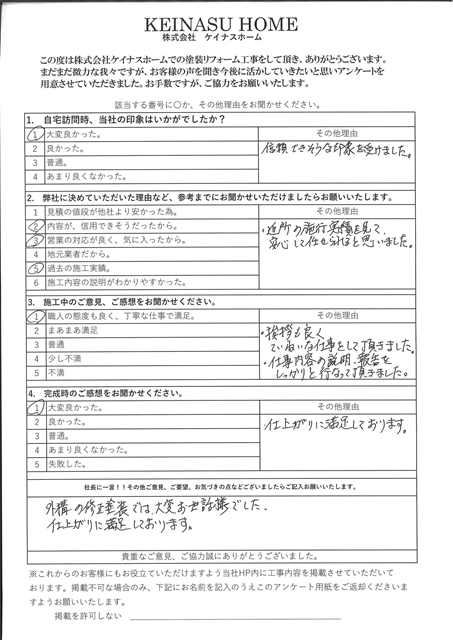 KEINASU HOME
株式会社 ケイナスホーム
この度は株式会社ケイナスホームでの塗装リフォーム工事をして頂き、ありがとうございます。
まだまだ微力な我々ですが、お客様の声を聞き今後に活かしていきたいと思いアンケートを
用意させていただきました。お手数ですが、ご協力をお願いします。
該当する番号に〇か、その他理由をお聞かせください。
1. 自宅訪問時、当社の印象はいかがでしたか？
1 大変良かった。 その他理由
2 良かった。 信頼できそうな印象を受けました。
3 普通。
4 あまり良くなかった。
2. 弊社に決めていただいた理由など、参考までにお聞かせいただけましたらお願いいたします。
1 見積の値段が他社より安かった為。 その他理由
2 内容が、信用できそうだったから。 ・近所の施行実績を見て、
3 営業の対応が良く、気に入ったから。 安心して任せられると思いました。
4 地元業者だから。
5 過去の施工実績。
6 施工内容の説明がわかりやすかった。
3. 施工中のご意見、ご感想をお聞かせください。
1 職人の態度も良く、丁寧な仕事で満足。 その他理由
2 まあまあ満足 ・挨拶も良く
3 普通 ていねいな仕事をして頂きました。
4 少し不満 ・仕事内容の説明、報告を
5 不満 しっかりと行なって頂きました。
4. 完成時のご感想をお聞かせください。
1 大変良かった。 その他理由
2 良かった。 仕上がりに満足しております。
3 普通。
4 あまり良くなかった。
5 失敗した。
社長に一言！！その他ご意見、ご要望、お気づきの点などございましたらご記入お願いいたします。
外構の修正塗装では、大変お世話様でした。
仕上がりに満足しております。
貴重なご意見、ご協力誠にありがとうございました。
※これからのお客様にもお役立ていただけますよう当社HP内に工事内容を掲載させていただいて
おります。掲載不可な場合のみ、下記にお名前を記入のうえこのアンケート用紙をご返却くださいま
すようお願いいたします。
掲載を許可しない